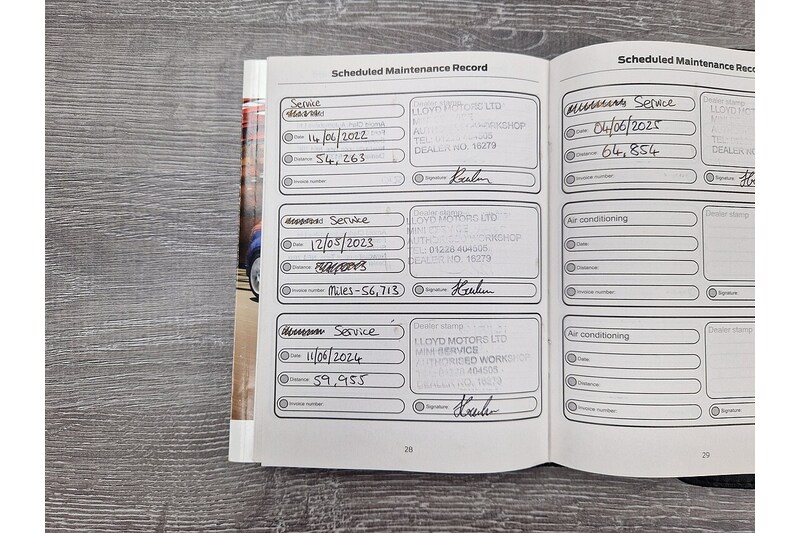 Scheduled Maintenance Record
Service
Date: 14/06/2022
Distance: 54,263
Invoice number:
Dealer stamp
LLOYD MOTORS LTD
DEALER NO. 16279
Signature:
Service
Date: 12/05/2023
Distance:
Invoice number: Miles-56,713
Dealer stamp
LLOYD MOTORS LTD
TEL: 01228 404505
DEALER NO. 16279
Signature:
Service
Date: 11/06/2024
Distance: 59,955
Invoice number:
Dealer stamp
LLOYD MOTORS LTD
MINI SERVICE
AUTHORISED WORKSHOP
TEL: 01228 404505
DEALER NO. 16279
Signature:
28
Scheduled Maintenance Reco
Service
Date: 04/06/2025
Distance: 64,854
Invoice number:
Dealer stam
LLOYD MOTO
DEALER NO
Signature:
Air conditioning
Date:
Distance:
Invoice number:
Dealer stamp
Signature:
Air conditioning
Date:
Distance:
Invoice number:
Dealer stamp
Signature:
29